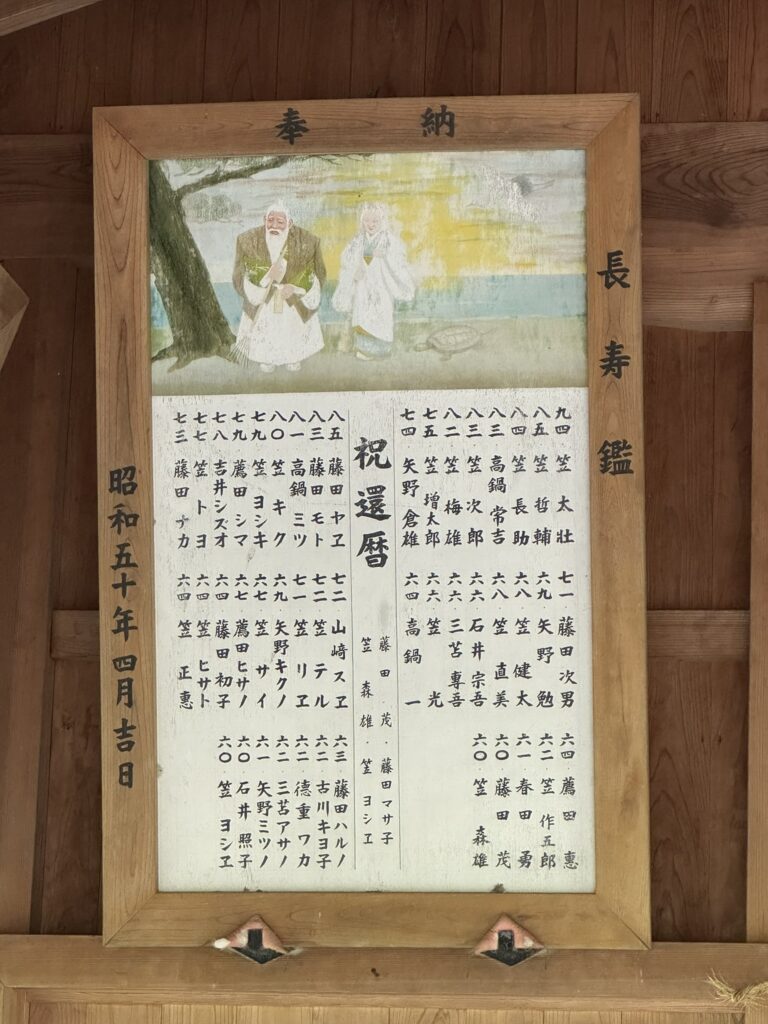 奉納
長寿鑑
九四 笠 太壮 七一 藤田次男 六四 薦田 惠
八五 笠 哲輔 六九 矢野 勉 六二 笠 作五郎
八四 笠 長助 六八 笠 健太 六一 春田 勇
八三 高鍋常吉 六八 笠 直美 六〇 藤田 茂
八三 笠 次郎 六六 石井宗吾 六〇 笠 森雄
八二 笠 梅雄 六六 三苫專吾
七五 笠 増太郎 六六 笠 光
七四 矢野倉雄 六四 高鍋 一
祝還暦
藤田 茂・藤田マサ子
笠 森雄・笠 ヨシヱ
八五 藤田ヤヱ 七二 山﨑スヱ 六三 藤田ハルノ
八三 藤田モト 七二 笠 テル 六二 古川キヨ子
八一 高鍋ミツ 七一 笠 リヱ 六二 德重ワカ
八〇 笠 キク 六九 矢野キクノ 六二 三苫アサノ
七九 笠 ヨシキ 六七 笠 サイ 六一 矢野ミツノ
七九 薦田シマ 六七 薦田ヒサノ 六〇 石井照子
七八 吉井シズオ 六四 藤田初子 六〇 笠 ヨシヱ
七七 笠 トヨ 六四 笠 ヒサト
七三 藤田ナカ 六四 笠 正惠
昭和五十年四月吉日